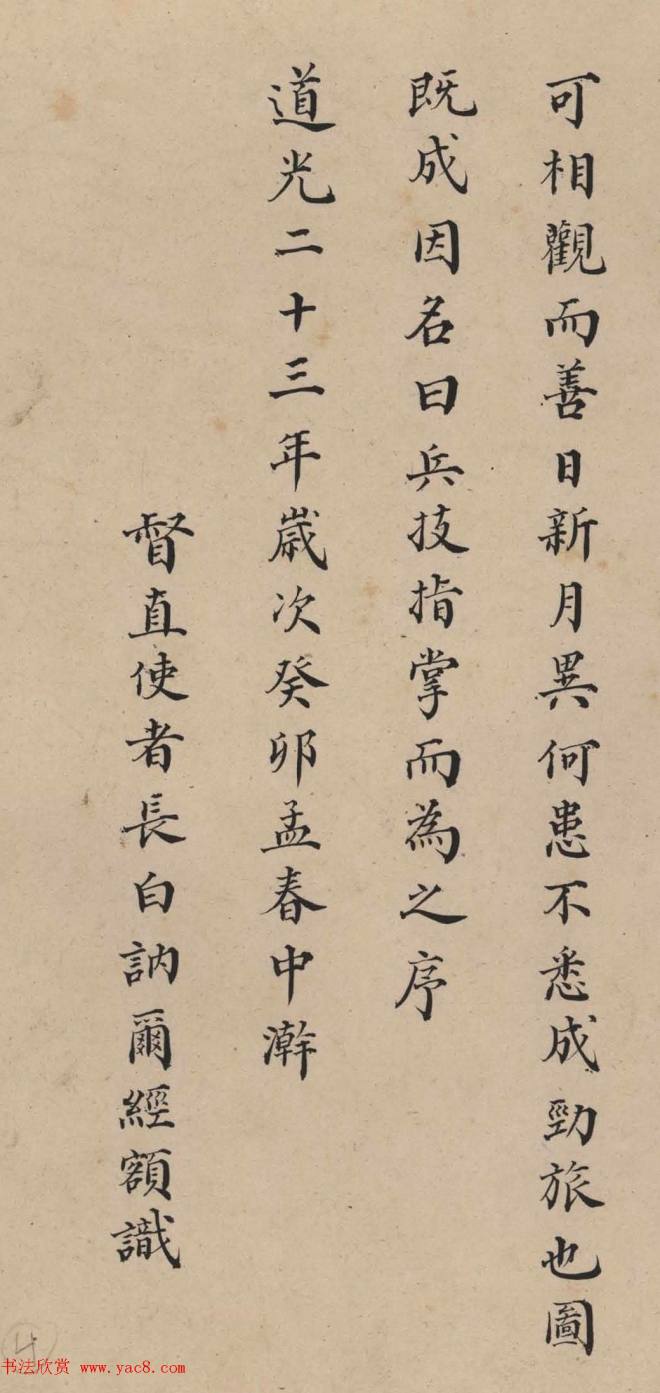 可相觀而善日新月異何患不悉成勁旅也圖
既成因名曰兵技指掌而為之序
道光二十三年歲次癸卯孟春中澣
督直使者長白訥爾經額識
书法欣赏 www.yac8.com